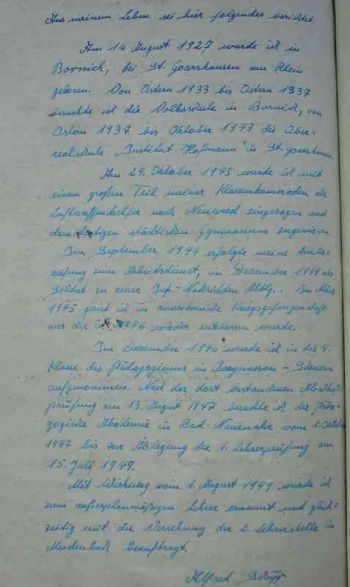 Aus meinem Leben sei hier folgendes berichtet.
Am 14. August 1927 wurde ich in
Bornich, bei St. Goarshausen am Rhein
geboren. Von Ostern 1933 bis Ostern 1937
besuchte ich die Volksschule in Bornich, von
Ostern 1937 bis Oktober 1943 die Ober-
realschule „Institut Hofmann" in St. Goarshausen.
Am 29. Oktober 1943 wurde ich mit
einem großen Teil meiner Klassenkameraden als
Luftwaffenhelfer nach Neuwied eingezogen und
dem dortigen städtischen Gymnasium zugewiesen.
Im September 1944 erfolgte meine Einbe-
rufung zum Arbeitsdienst, im Dezember 1944 als
Soldat zu einer Inf.-Nachrichten Abtlg.. Im März
1945 geriet ich in amerikanische Kriegsgefangenschaft
aus der ich 1946 wieder entlassen wurde.
Im Dezember 1946 wurde ich in die
Klasse des Pädagogiums in
aufgenommen. Nach der dort bestandenen Abschluß-
prüfung am 13. August 1947 besuchte ich die Päda-
gogische Akademie in Bad-Neuenahr vom 1. Oktober
1947 bis zur Ablegung der 1. Lehrerprüfung am
15. Juli 1949.
Mit Wirkung vom 1. August 1949 wurde ich
zum außerplanmäßigen Lehrer ernannt und gleich-
zeitig mit der Versehung der 2. Lehrerstelle in
beauftragt.
Alfred